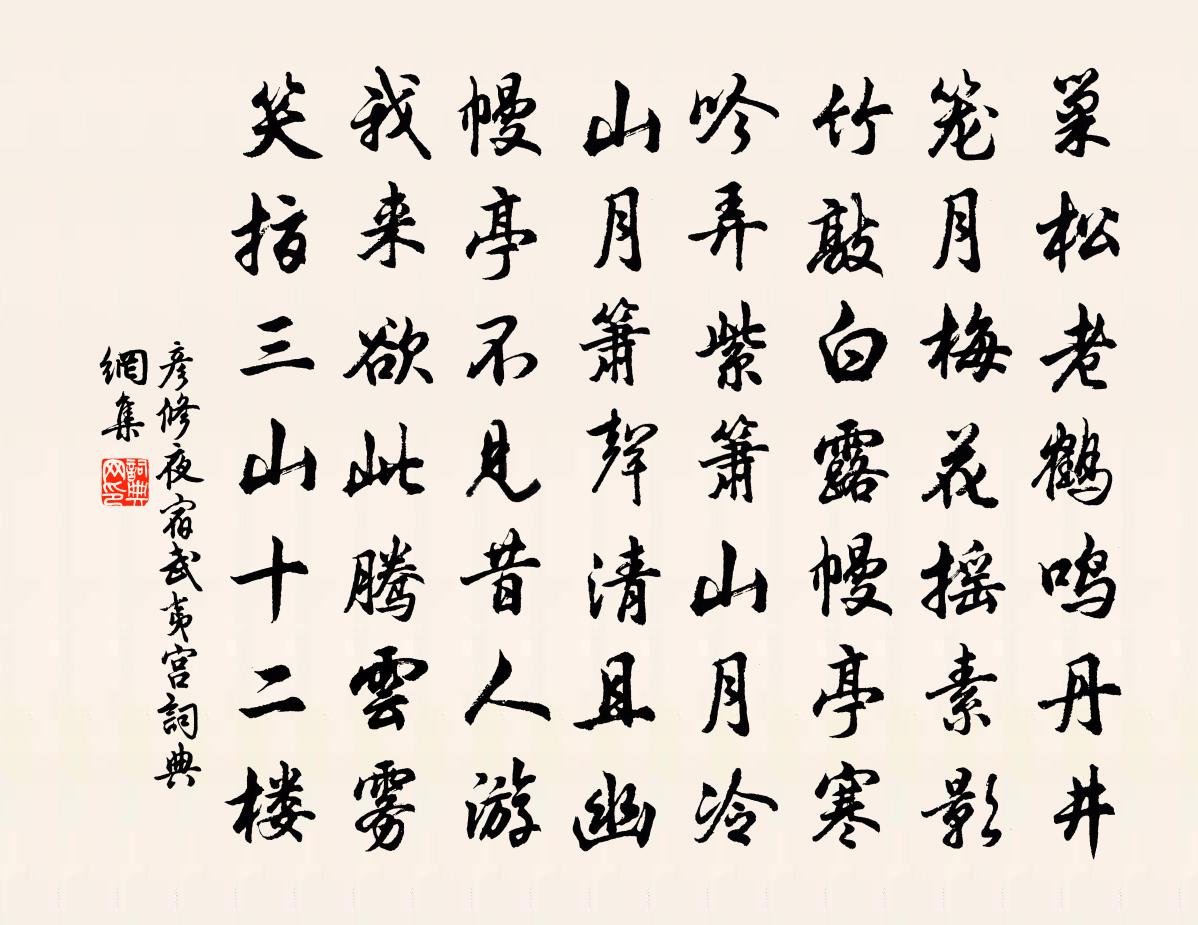 巢松老鹤鸣丹井
笼月梅花摇素影
竹敲白露幔亭寒
吟弄紫箫山月冷
山月箫声清且幽
幔亭不见昔人游
我来欲此腾雲雾
笑指三山十二楼
彦修夜宿武夷宫詞典
網集
詞典网印